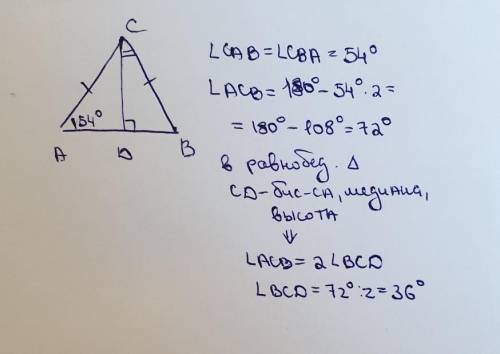 C
54°
A
D
B
∠CAB = ∠CBA = 54°
∠ACB = 180° - 54° · 2 =
= 180° - 108° = 72°
в равнобед. Δ
CD - бис-са, медиана,
высота
⇓
∠ACB = 2∠BCD
∠BCD = 72° : 2 = 36°